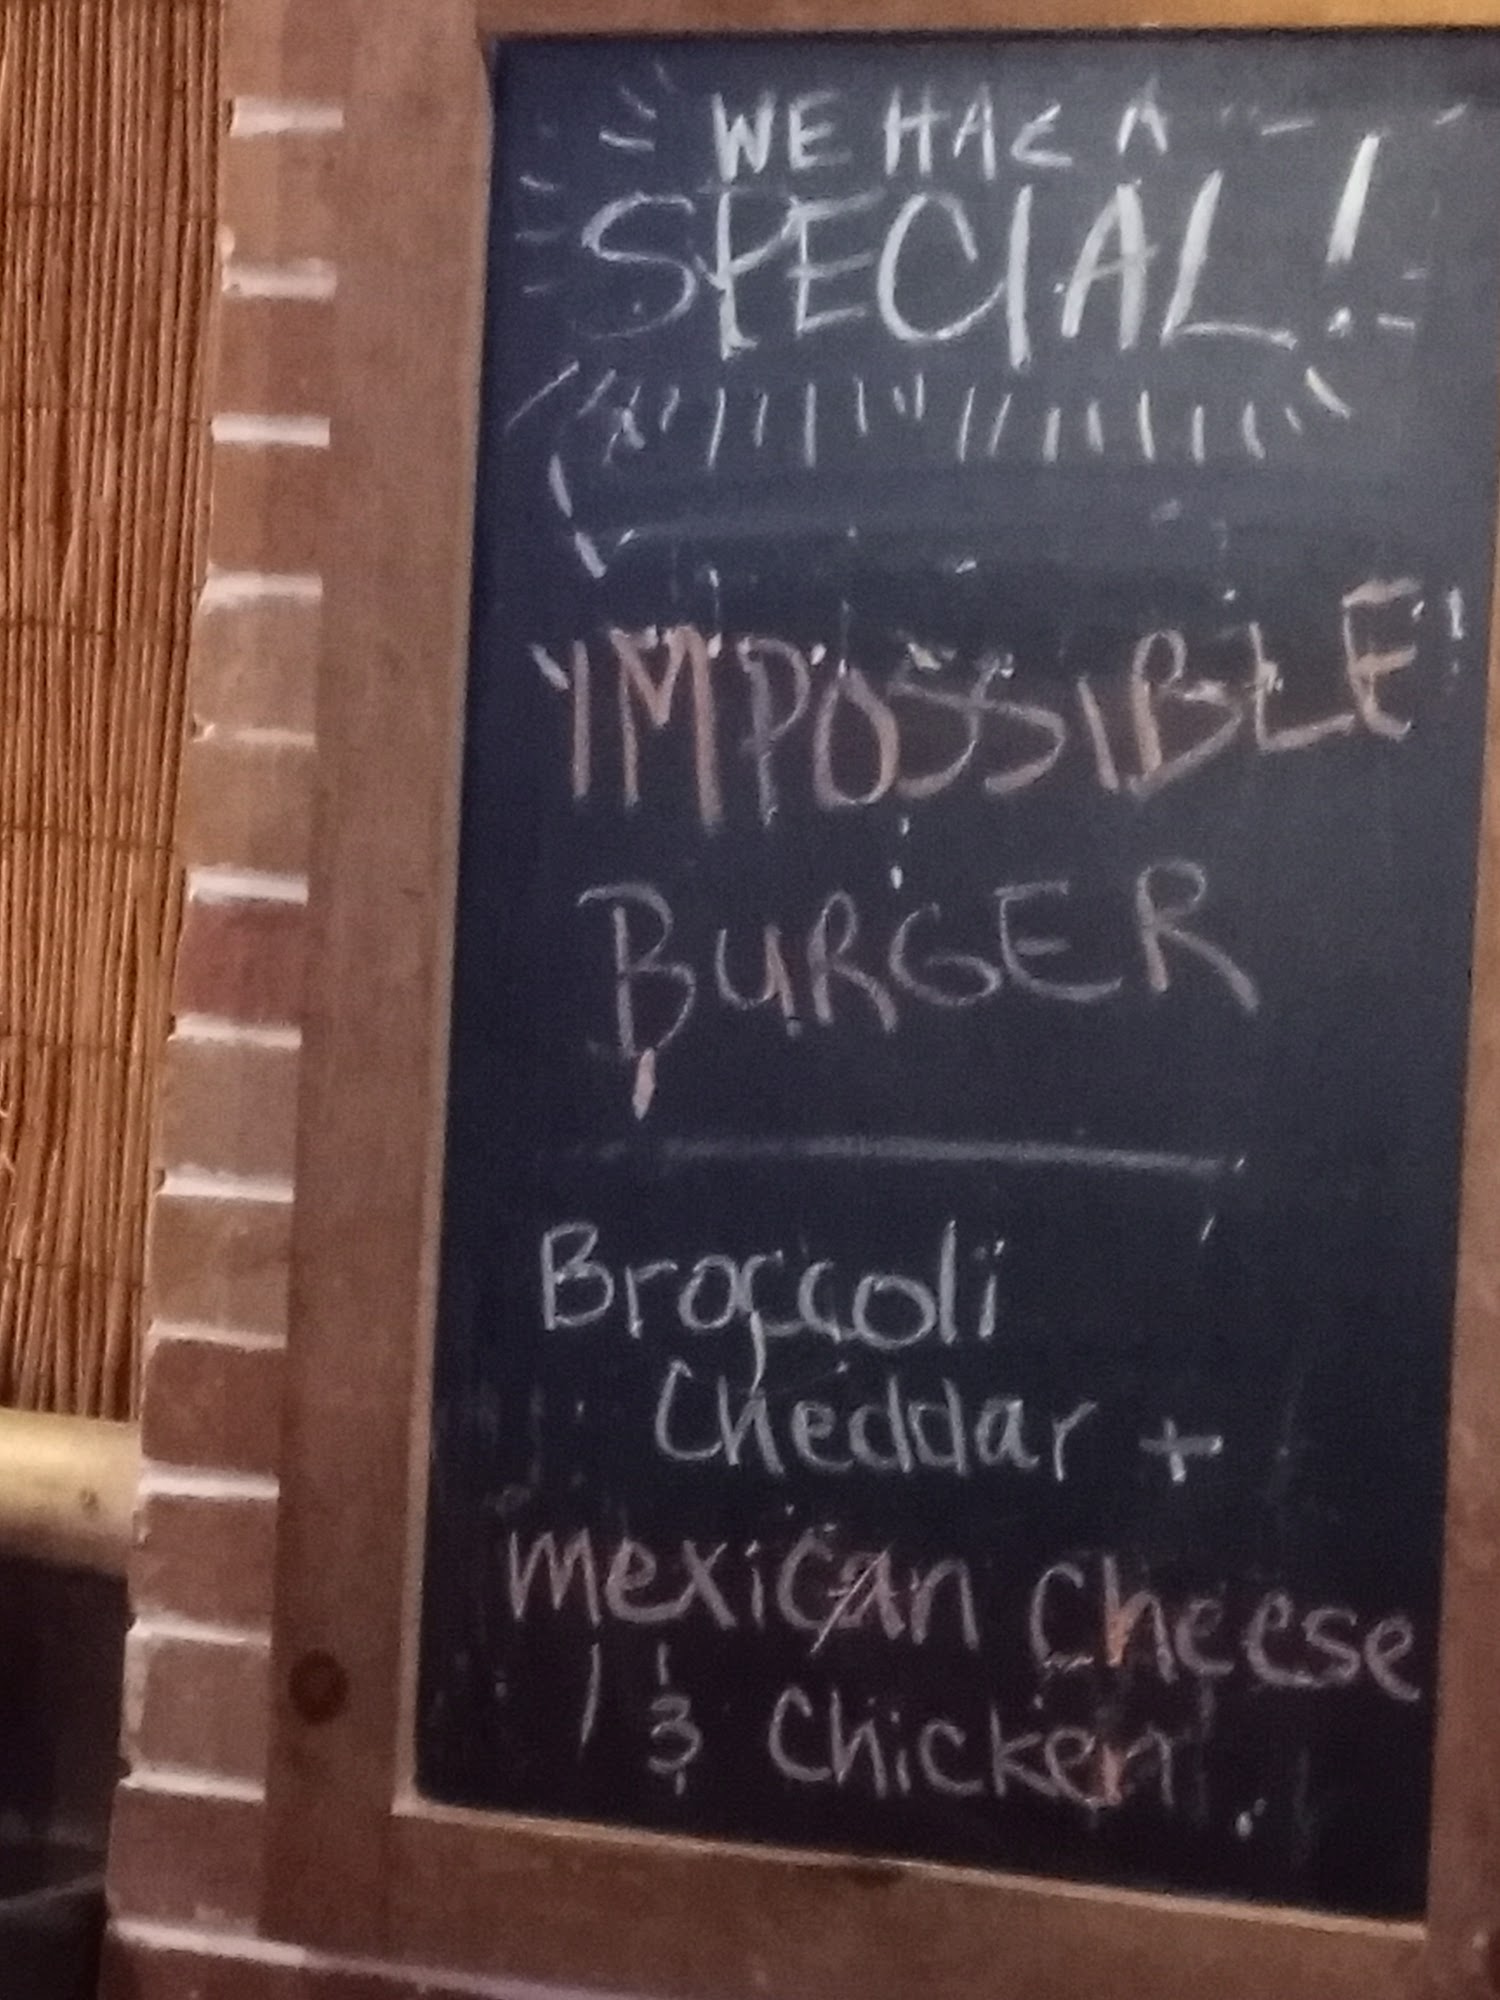 WE HAE A
SPECIAL!
IMPOSSIBLE
BURGER
Broccoli
Cheddar +
Mexican Cheese
& Chicken